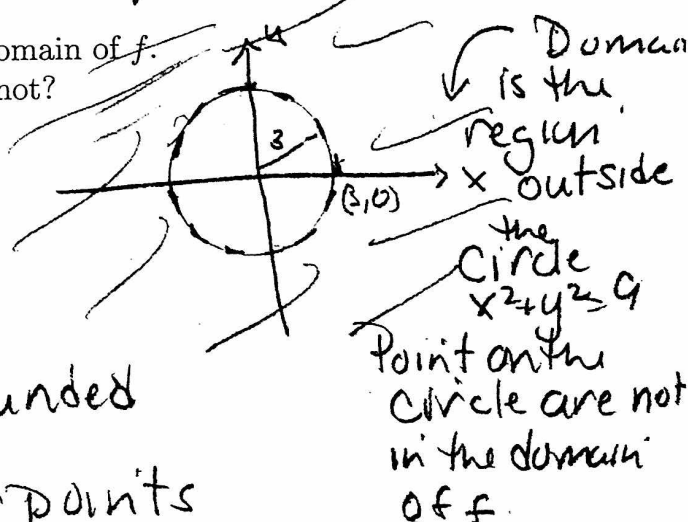 omain of f.
not?
y
3
x
(3,0)
Domain
is the
region
outside
the
circle
x²+y²=9
Point on the
circle are not
in the domain
of f.
unded
points